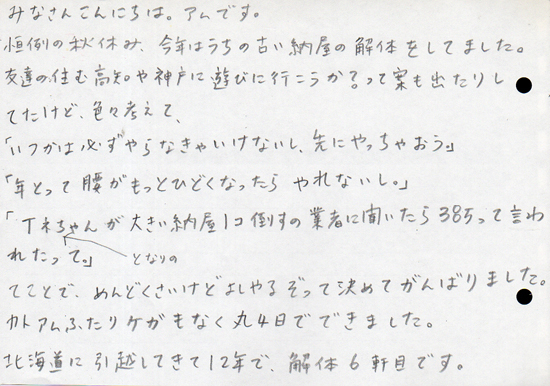 みなさんこんにちは。アムです。
恒例の秋休み、今年はうちの古い納屋の解体をしてました。
友達の住む高知や神戸に遊びに行こうか？って案も出たりし
てたけど、色々考えて、
「いつかは必ずやらなきゃいけないし、先にやっちゃおう。」
「年とって腰がもっとひどくなったら やれないし。」
「Tネちゃんが大きい納屋1コ倒すの業者に聞いたら385って言わ
れたって。」
となりの
てことで、めんどくさいけどよしやるぞって決めてがんばりました。
カトアムふたりケガもなく丸4日でできました。
北海道に引越してきて12年で、解体6軒目です。